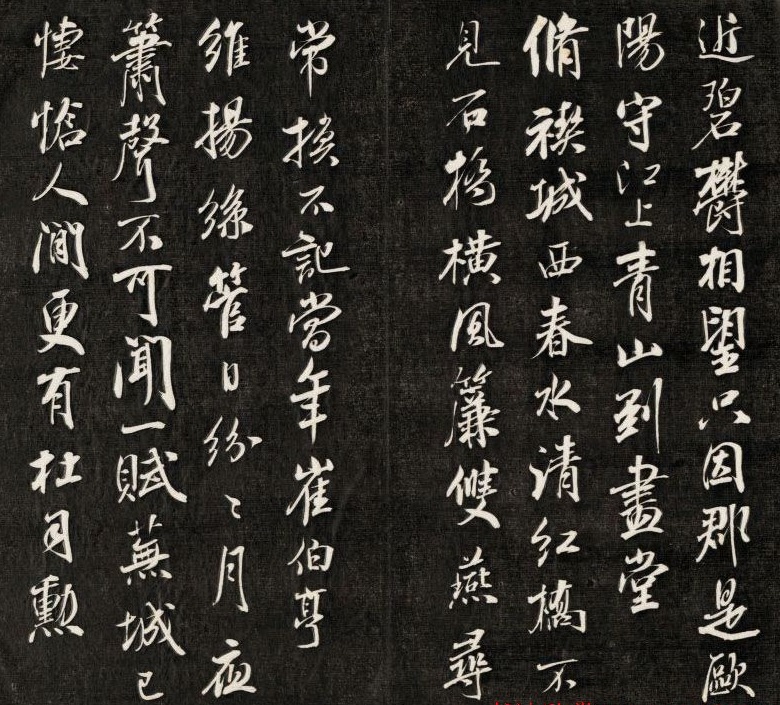 近碧鬱相望只因郡是歐
陽守江上青山到畫堂
脩禊城西春水清紅橋不
見石橋橫風簾雙燕尋
常換不記當年崔伯亭
維揚絲管日紛〻月夜
簫聲不可聞一賦蕪城已
悽愴人間更有杜司勳